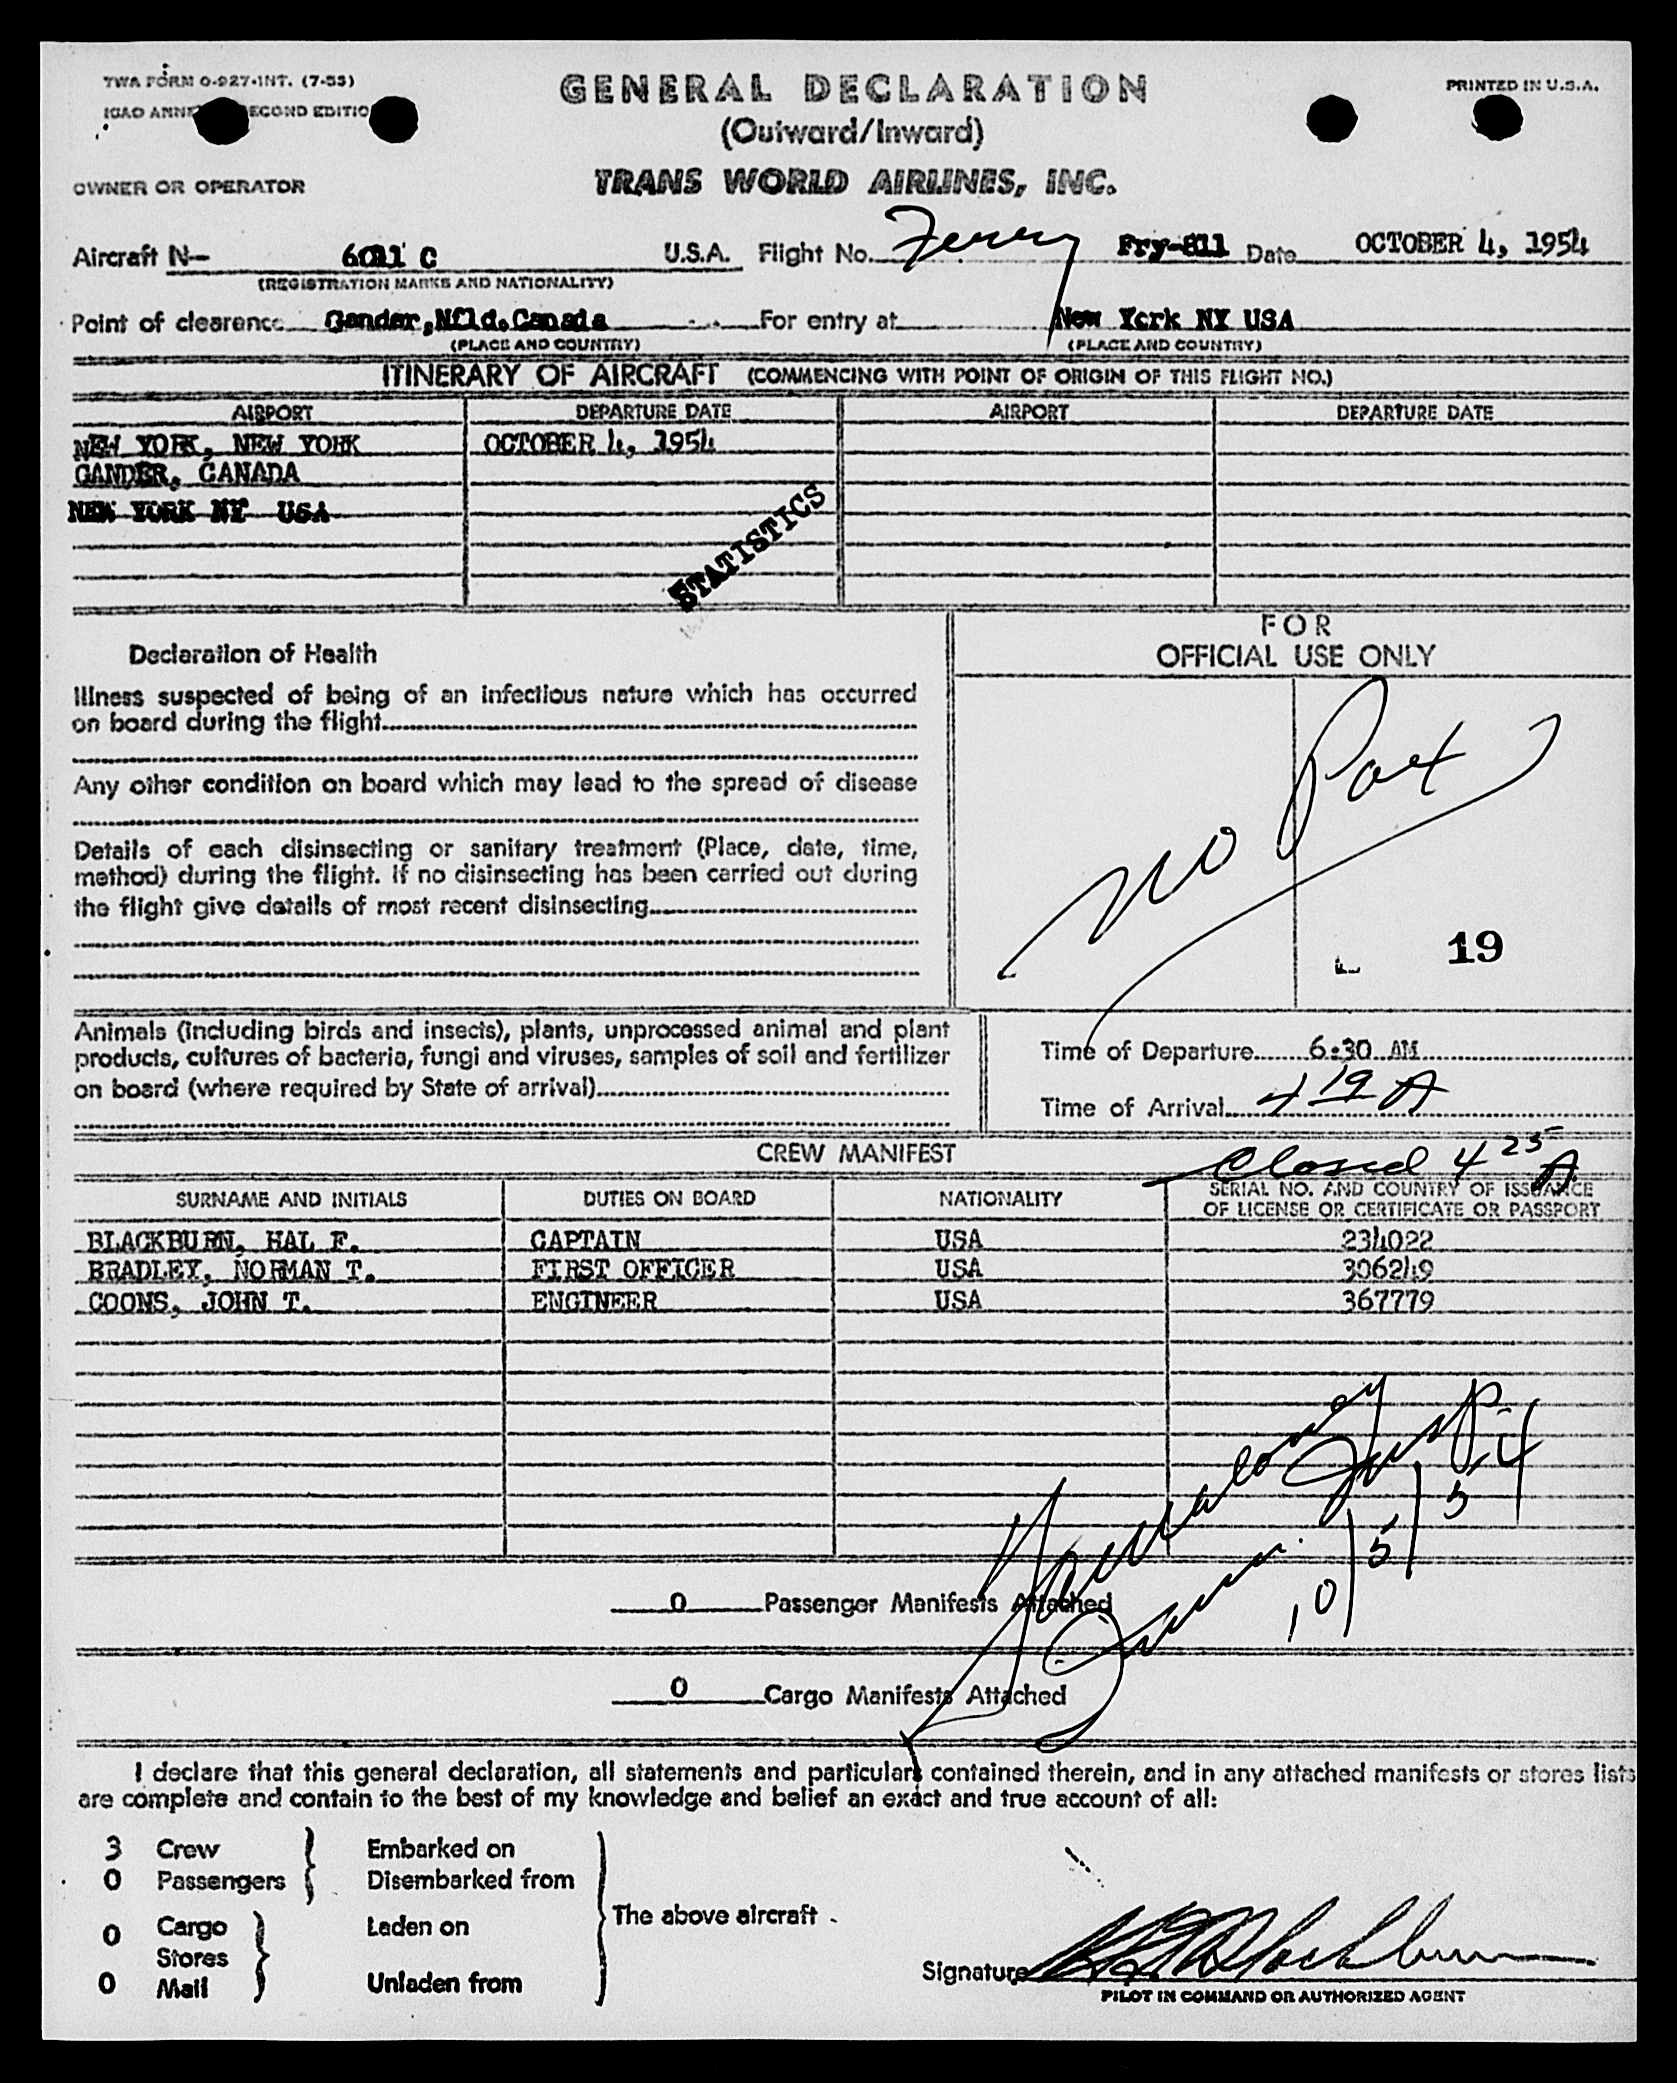 TWA FORM O-927-INT. (7-53)
PRINTED IN U.S.A.
GENERAL DECLARATION
ICAO ECOND EDITIO
(Outward/Inward)
OWNER OR OPERATOR
TRANS WORLD AIRLINES, INC.
Aircraft N- C U.S.A. Flight No. Ferry Date OCTOBER 4, 1954
(REGISTRATION MARKS AND NATIONALITY)
Point of clearance Gander,Nfld.Canada For entry at New York NY USA
(PLACE AND COUNTRY) (PLACE AND COUNTRY)
ITINERARY OF AIRCRAFT (COMMENCING WITH POINT OF ORIGIN OF THIS FLIGHT NO.)
AIRPORT DEPARTURE DATE AIRPORT DEPARTURE DATE
NEW YORK, NEW YORK OCTOBER 4, 1954
GANDER, CANADA
NEW YORK NY USA
STATISTICS
FOR
OFFICIAL USE ONLY
Declaration of Health
Illness suspected of being of an infectious nature which has occurred
on board during the flight
Any other condition on board which may lead to the spread of disease
Details of each disinsecting or sanitary treatment (Place, date, time,
method) during the flight. If no disinsecting has been carried out during
the flight give details of most recent disinsecting
No Pax
19
Animals (Including birds and insects), plants, unprocessed animal and plant
products, cultures of bacteria, fungi and viruses, samples of soil and fertilizer
on board (where required by State of arrival)
Time of Departure 6:30 AM
Time of Arrival 4 19 A
CREW MANIFEST
Closed 4 25 A
SURNAME AND INITIALS DUTIES ON BOARD NATIONALITY SERIAL NO. AND COUNTRY OF ISSUANCE
OF LICENSE OR CERTIFICATE OR PASSPORT
BLACKBURN, HAL F. CAPTAIN USA 234022
BRADLEY, NORMAN T. FIRST OFFICER USA 306249
COONS, JOHN T. ENGINEER USA 367779
10/5/54
0 Passenger Manifests Attached
0 Cargo Manifests Attached
I declare that this general declaration, all statements and particulars contained therein, and in any attached manifests or stores lists
are complete and contain to the best of my knowledge and belief an exact and true account of all:
3 Crew Embarked on
0 Passengers Disembarked from
0 Cargo Laden on The above aircraft
Stores
0 Mail Unladen from
Signature H F Blackburn
PILOT IN COMMAND OR AUTHORIZED AGENT